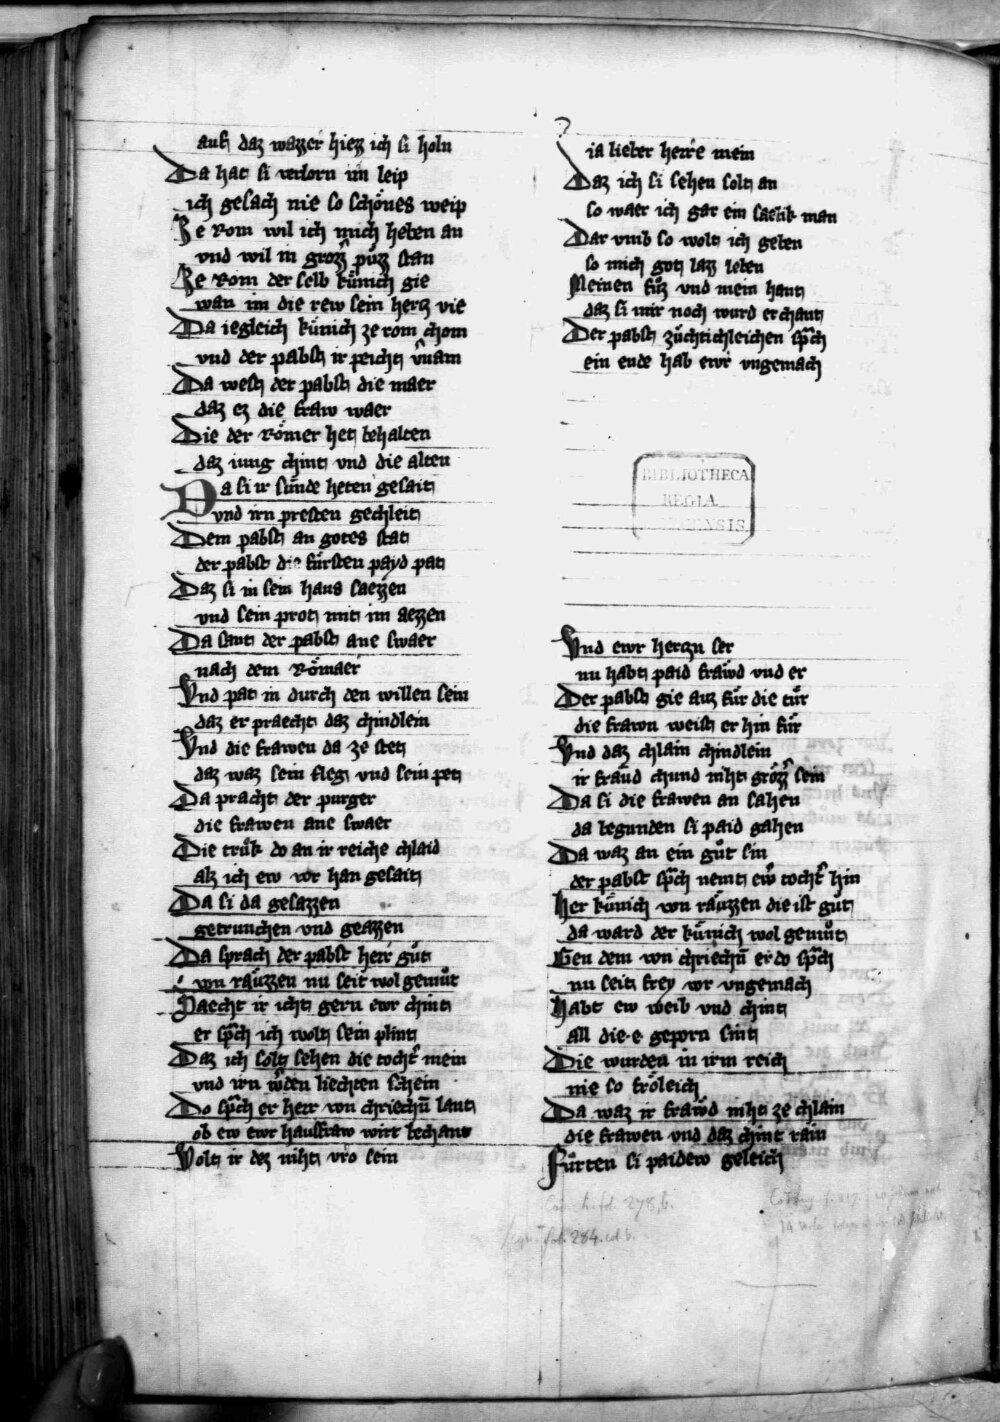 auf daz wazzer hiez ich si holn
Da hat si verlorn im leip
ich gesach nie so schönes weip
Ze Rom wil ich mich heben an
vnd wil in grozz püzz stan
Ze Rom der selb künich gie
wan im die rew sein hertz vie
Da iegleich künich ze rom chom
vnd der pabst ir peicht vnam
Da west der pabst die maer
daz ez die fraw waer
Die der Römer het behalten
daz iung chint vnd die alten
Da si ir sünde heten gesait
vnd irn presten gechleit
Dem pabst an gotes stat
der pabst die fürsten payd pat
Daz si in sein haus saezzen
vnd sein prot mit im aezzen
Da sant der pabst ane swaer
nach dem Römaer
Vnd pat in durch den willen sein
daz er praecht daz chindlein
Vnd die frawen da ze stet
daz waz sein fleg vnd sein pet
Da pracht der purger
die frawen ane swaer
Die trůk do an ir reiche chlaid
alz ich ew vor han gesait
Da si da gesazzen
getrunchen vnd geazzen
Da sprach der pabst herr gůt
von räuzzen nu seit wol gemůt
Saecht ir icht gern ewr chint
er spch ich wolt sein plint
Daz ich solt sehen die tocht mein
vnd irn wden liechten schein
Do spch er herr von chriechn laut
ob ew ewr hausfraw wirt bechant
Wolt ir dez niht vro sein
ia lieber herre mein
Daz ich si sehen solt an
so waer ich gar ein saelik man
Dar vmb so wolt ich geben
so mich got lazz leben
Meinen fůz vnd mein hant
daz si mir noch wurd erchant
Der pabst züchtichleichen spch
ein ende hab ewr vngemach
BIBLIOTHECA
REGIA
Vnd ewr hertzn ser
nu habt paid fräwd vnd er
Der pabst gie auz für die tür
die frawon weist er hin für
Vnd daz chlain chindlein
ir fräud chund niht grözz sein
Da si die frawen an sahen
da begunden si paid gahen
Da waz an ein gůt sin
der pabst spch nemt ew tocht hin
Her künich von räuzzen die ist gůt
da ward der künich wol gemůt
Gen dem von chriechn er do spch
nu seit frey vor vngemach
Habt ew weib vnd chint
all die e geporn sint
Die wurden in irm reich
nie so fröleich
Da waz ir fräwd niht ze chlain
die frawen vnd daz chint rain
Fürten si paidew geleich